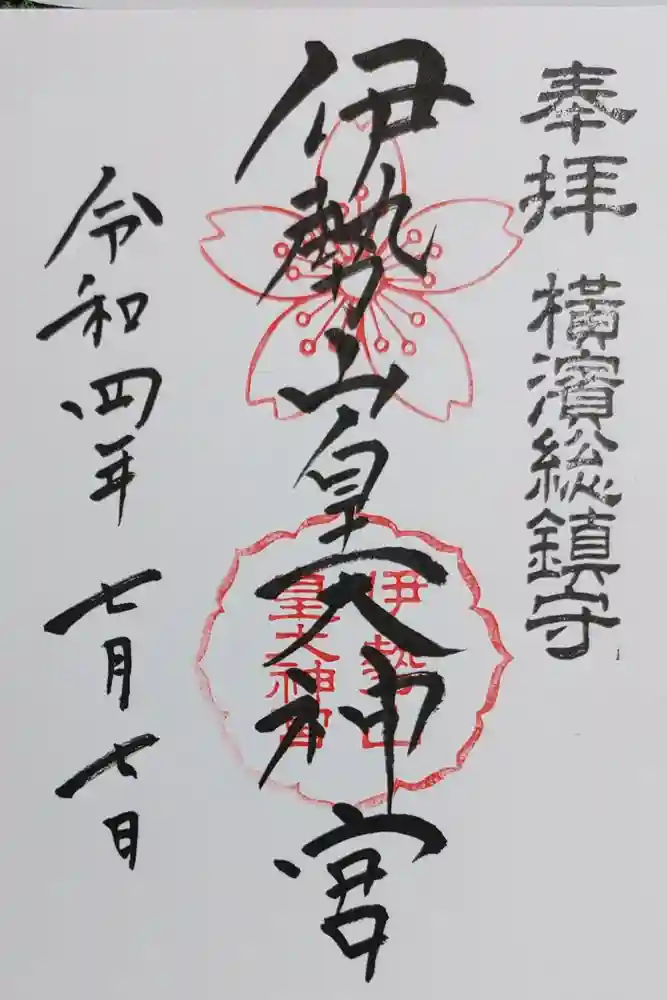 奉拝
横濱総鎮守
伊勢山皇大神宮
伊勢山
皇大神宮
令和四年
七月七日